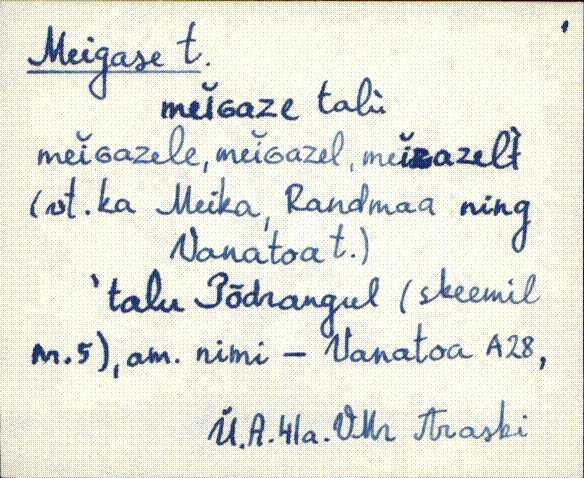 Meigase t.
meĭɢaze talù
meĭɢazele, meĭɢazel, meĭɢazelt
(vt. ka Meika, Randmaa ning
Vanatoa t.)
'talu Põdrangul (skeemil
nr. 5), am. nimi – Vanatoa A28,
Ü.A. 41a. VMr Araski